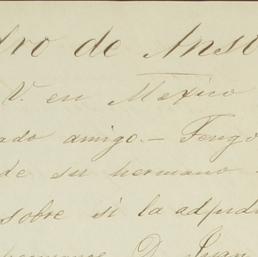 dro de Anso
V. en Mexico
ado amigo.- Tengo
de su hermano
sobre si la adjudi
hermano D. Juan